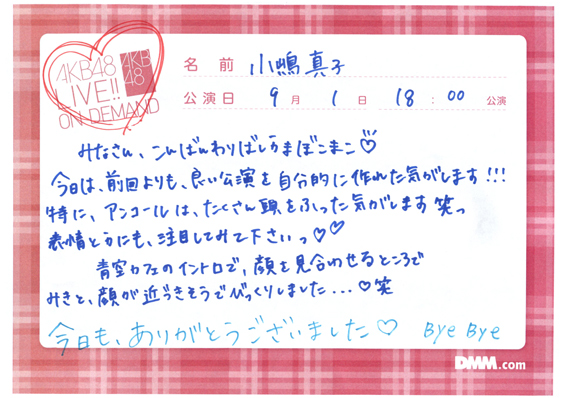 AKB48
LIVE!!
ON DEMAND
AKB
48
名前 小嶋真子
公演日 9月 1日 18:00 公演
みなさん、こんばんわりばしうまぼこまこ♡
今日は、前回よりも、良い公演を自分的に作れた気がします!!!
特に、アンコールは、たくさん頭をふった気がします笑っ
表情とかにも、注目してみて下さいっ♡♡
青空カフェのイントロで、顔を見合わせるところで
みきと、顔が近づきそうでびっくりしました...♡笑
今日も、ありがとうございました♡ Bye Bye
DMM.com